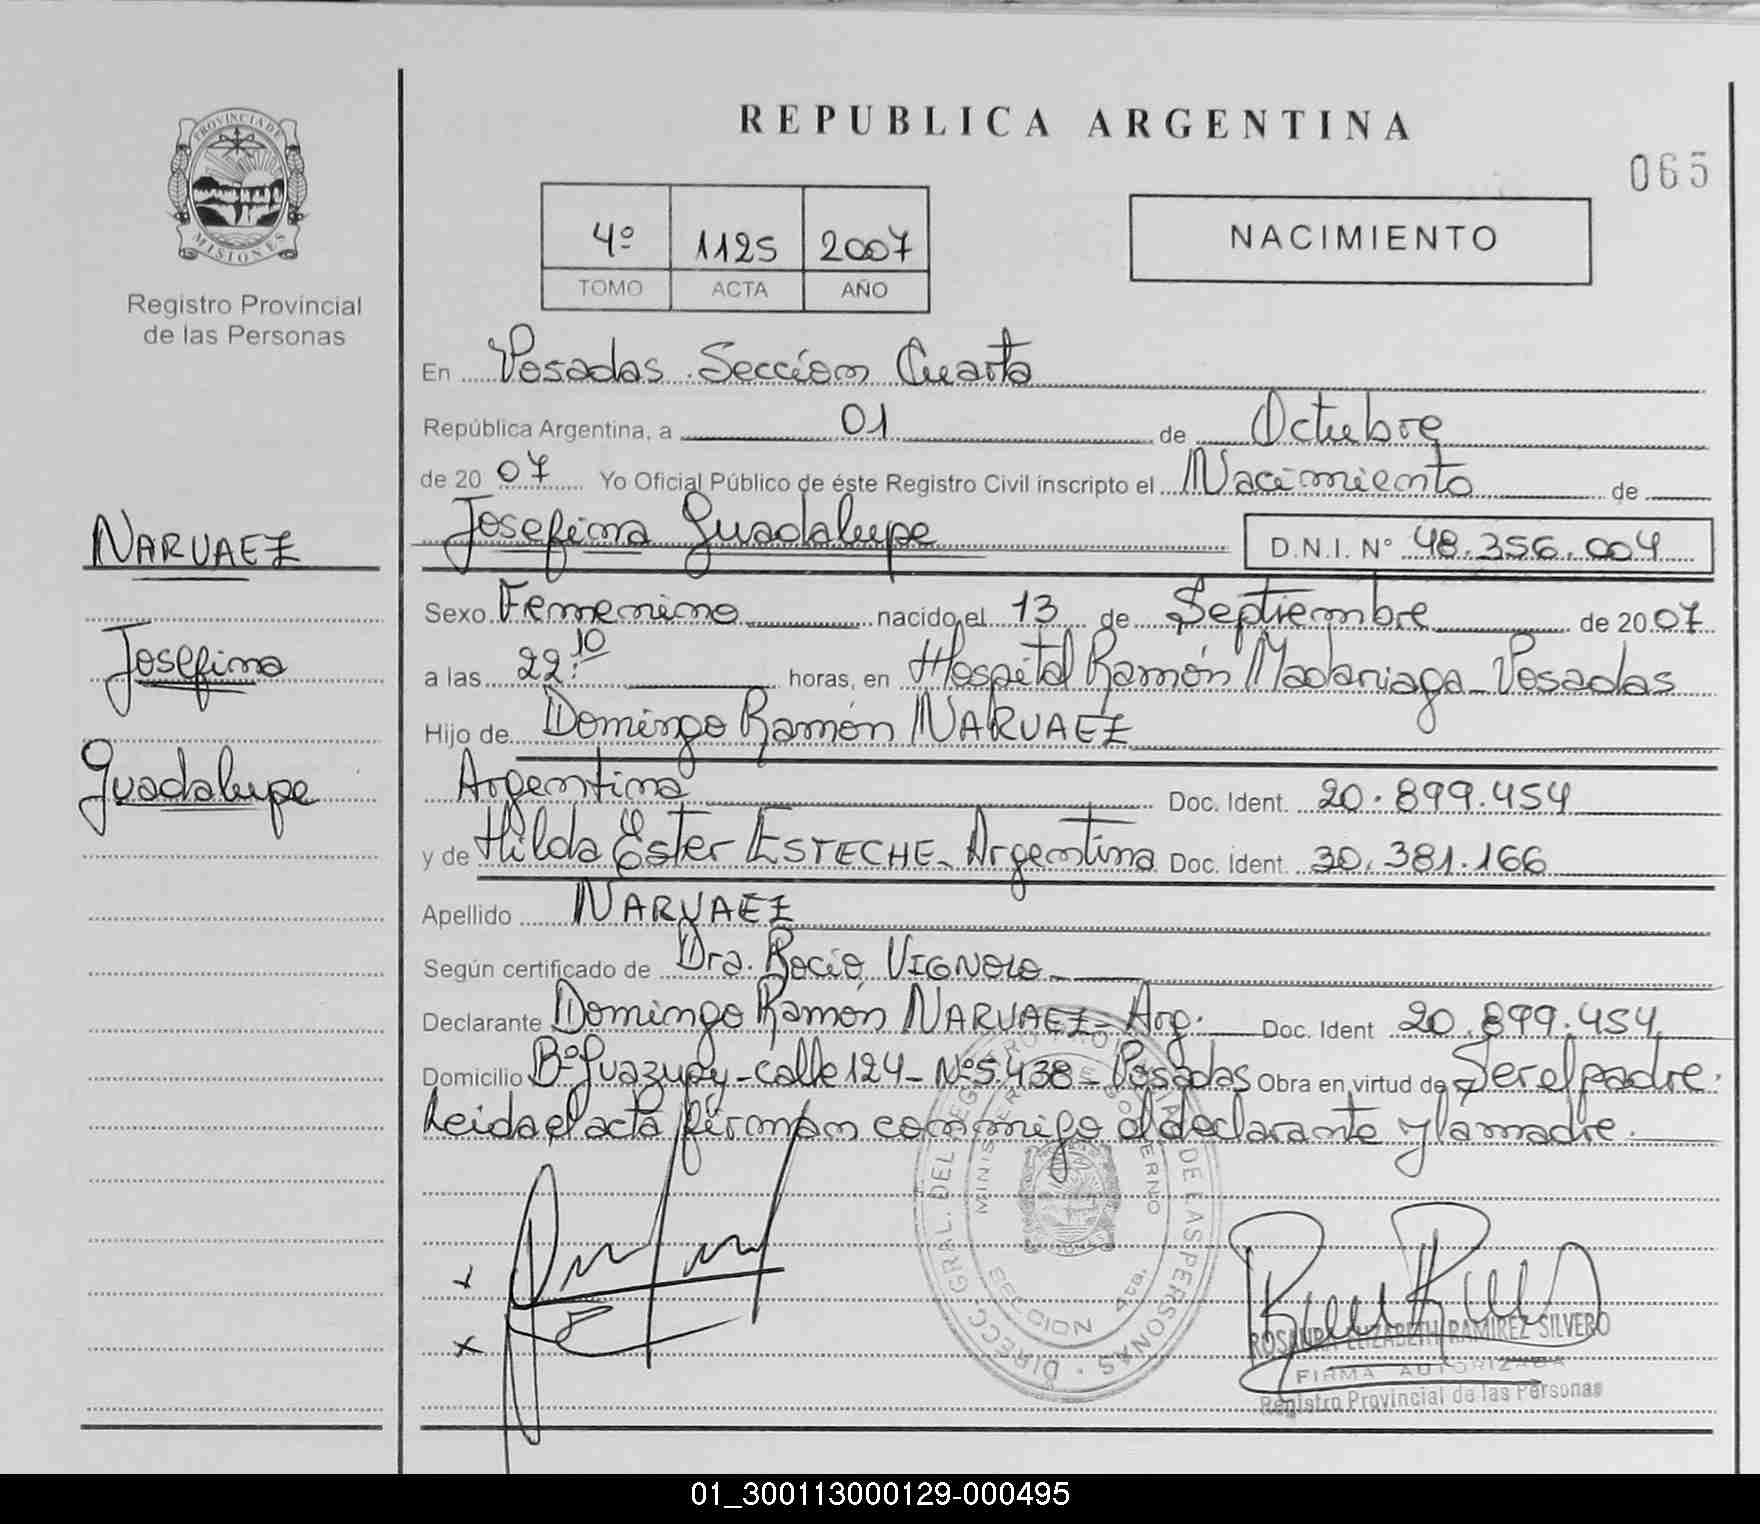 PROVINCIA DE
MISIONES
Registro Provincial
de las Personas
NARVAEZ
Josefina
Guadalupe
REPUBLICA ARGENTINA
065
4º 1125 2007
TOMO ACTA AÑO
NACIMIENTO
En Posadas Sección Cuarta
República Argentina, a 01 de Octubre
de 20 07 Yo Oficial Público de éste Registro Civil inscripto el Nacimiento de
Josefina Guadalupe D.N.I. Nº 48.356.004
Sexo Femenino nacido el 13 de Septiembre de 2007
a las 22:10 horas, en Hospital Ramón Madariaga - Posadas
Hijo de Domingo Ramón NARVAEZ
Argentina Doc. Ident. 20.899.454
y de Hilda Ester ESTECHE - Argentina Doc. Ident. 30.381.166
Apellido NARVAEZ
Según certificado de Dra. Rocío VIGNOLO
Declarante Domingo Ramón NARVAEZ - Arg. Doc. Ident 20.899.454
Domicilio Bº Guazupy - calle 124 - Nº 5438 - Posadas Obra en virtud de Ser el padre.
Leida el acta firman conmigo el declarante y la madre.
DIRECC GRAL. DEL REGISTRO PROVINCIAL DE LAS PERSONAS
MINISTERIO DE GOBIERNO
SECCION 4ta.
ROSAURA ELIZABETH RAMIREZ SILVERO
FIRMA AUTORIZADA
Registro Provincial de las Personas
01_300113000129-000495